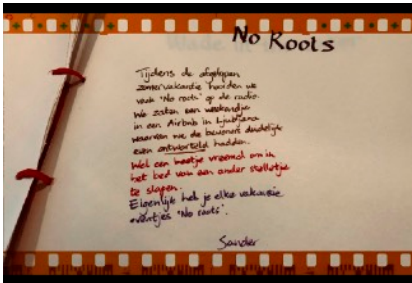 No Roots
Tijdens de afgelopen
zomervakantie hoorden we
vaak 'No roots' op de radio.
We zaten een weekendje
in een Airbnb in Ljubljana
waarvan we de bewoners duidelijk
even ontworteld hadden.
Wel een beetje vreemd om in
het bed van een ander stelletje
te slapen.
Eigenlijk heb je elke vakantie
eventjes 'No roots'.
Sander